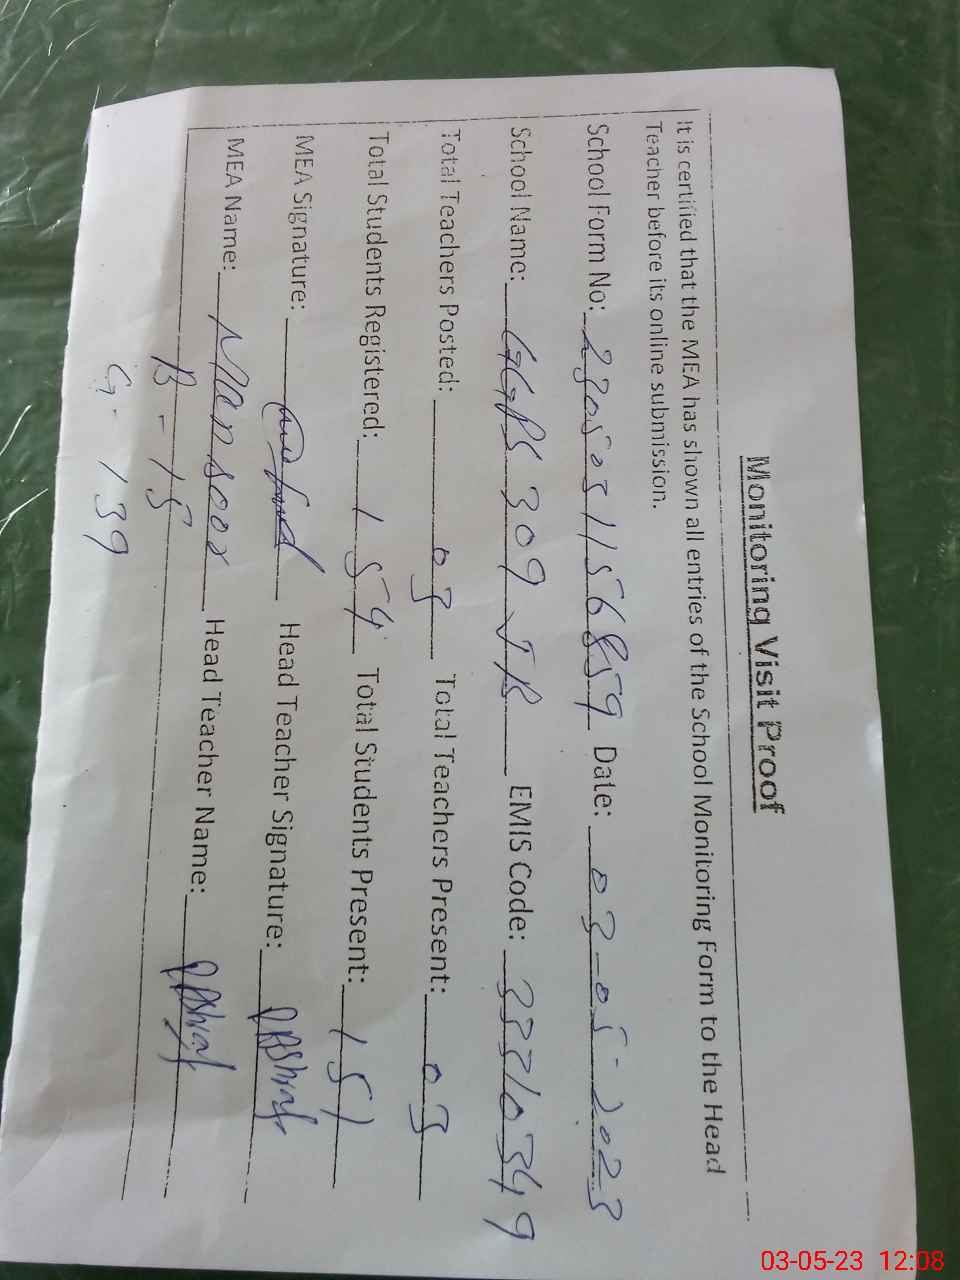 Monitoring Visit Proof
It is certified that the MEA has shown all entries of the School Monitoring Form to the Head
Teacher before its online submission.
School Form No: 2305031156859 Date: 03-05-2023
School Name: GGPS 309 JB EMIS Code: 33210349
Total Teachers Posted: 03 Total Teachers Present: 03
Total Students Registered: 154 Total Students Present: 151
MEA Signature: Head Teacher Signature:
MEA Name: Mansoor Head Teacher Name:
B-15
G-139
03-05-23 12:08